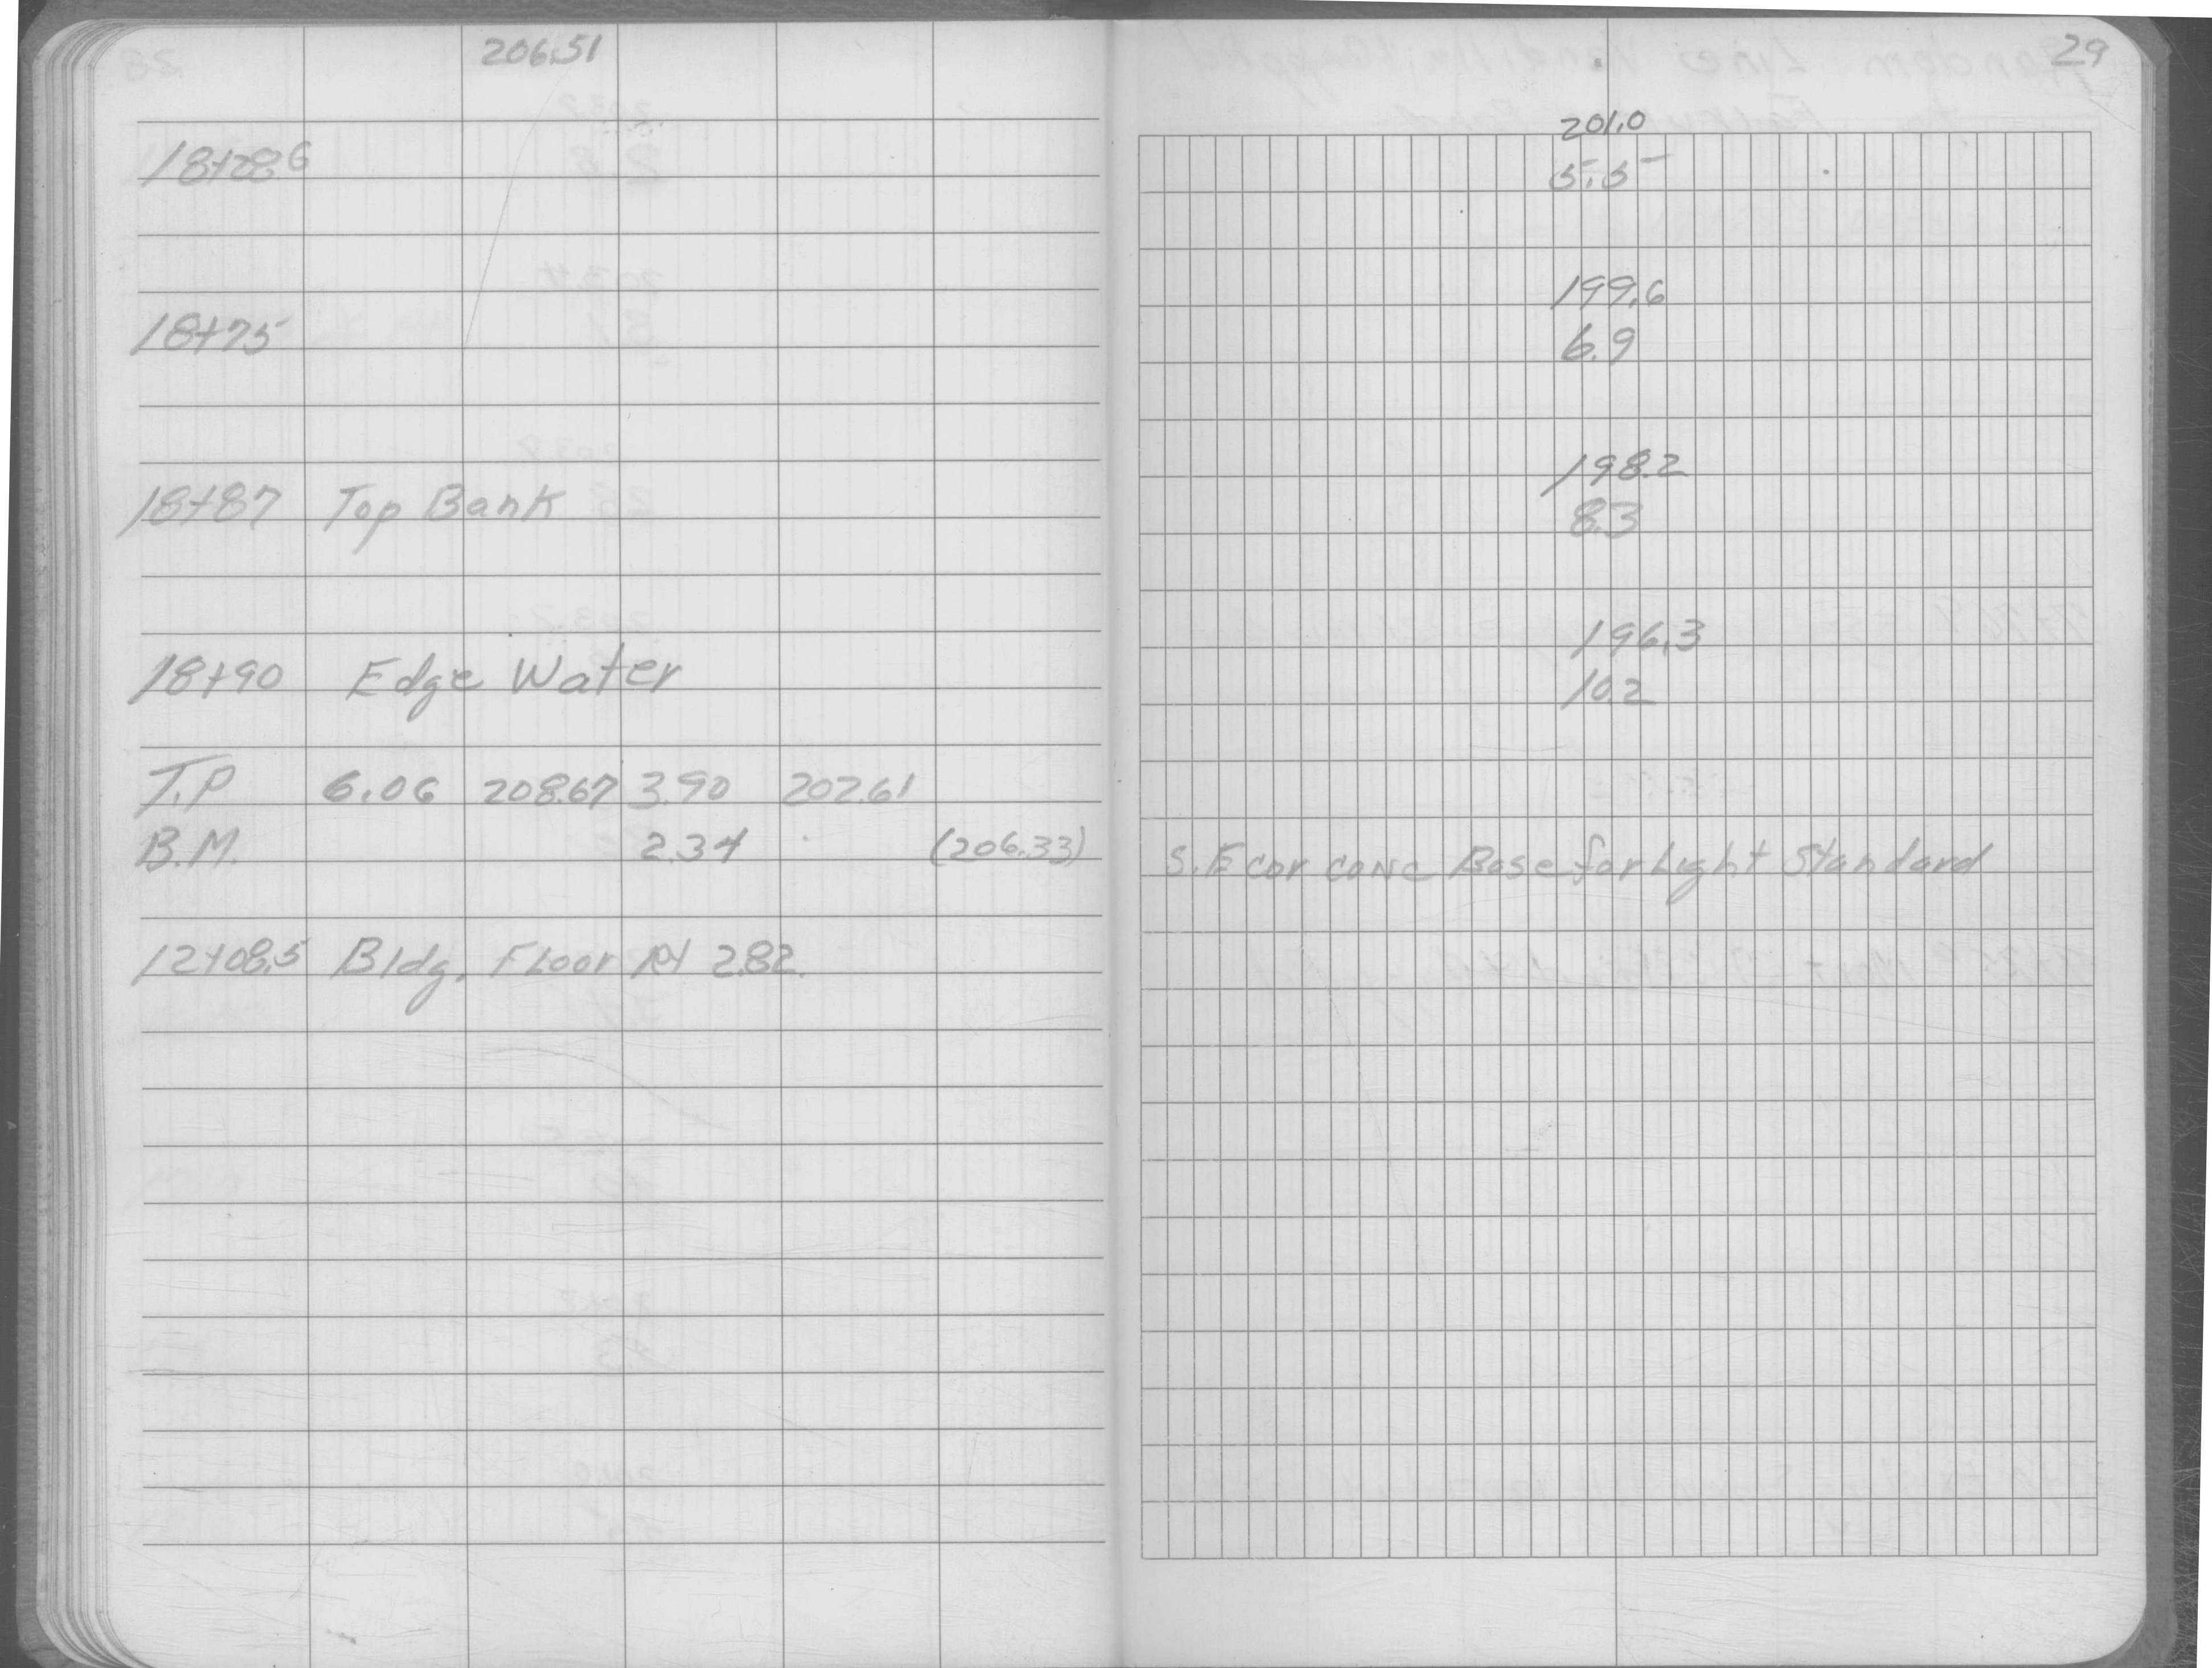 206.51
29
201.0
18+28.6 5.5
199.6
18+75 6.9
198.2
18+87 Top Bank 8.3
196.3
18+90 Edge Water 10.2
T.P 6.06 208.67 3.90 202.61
B.M. 2.34 (206.33) S.E cor conc Base for Light Standard
12+08.5 Bldg. Floor Rt 2.82